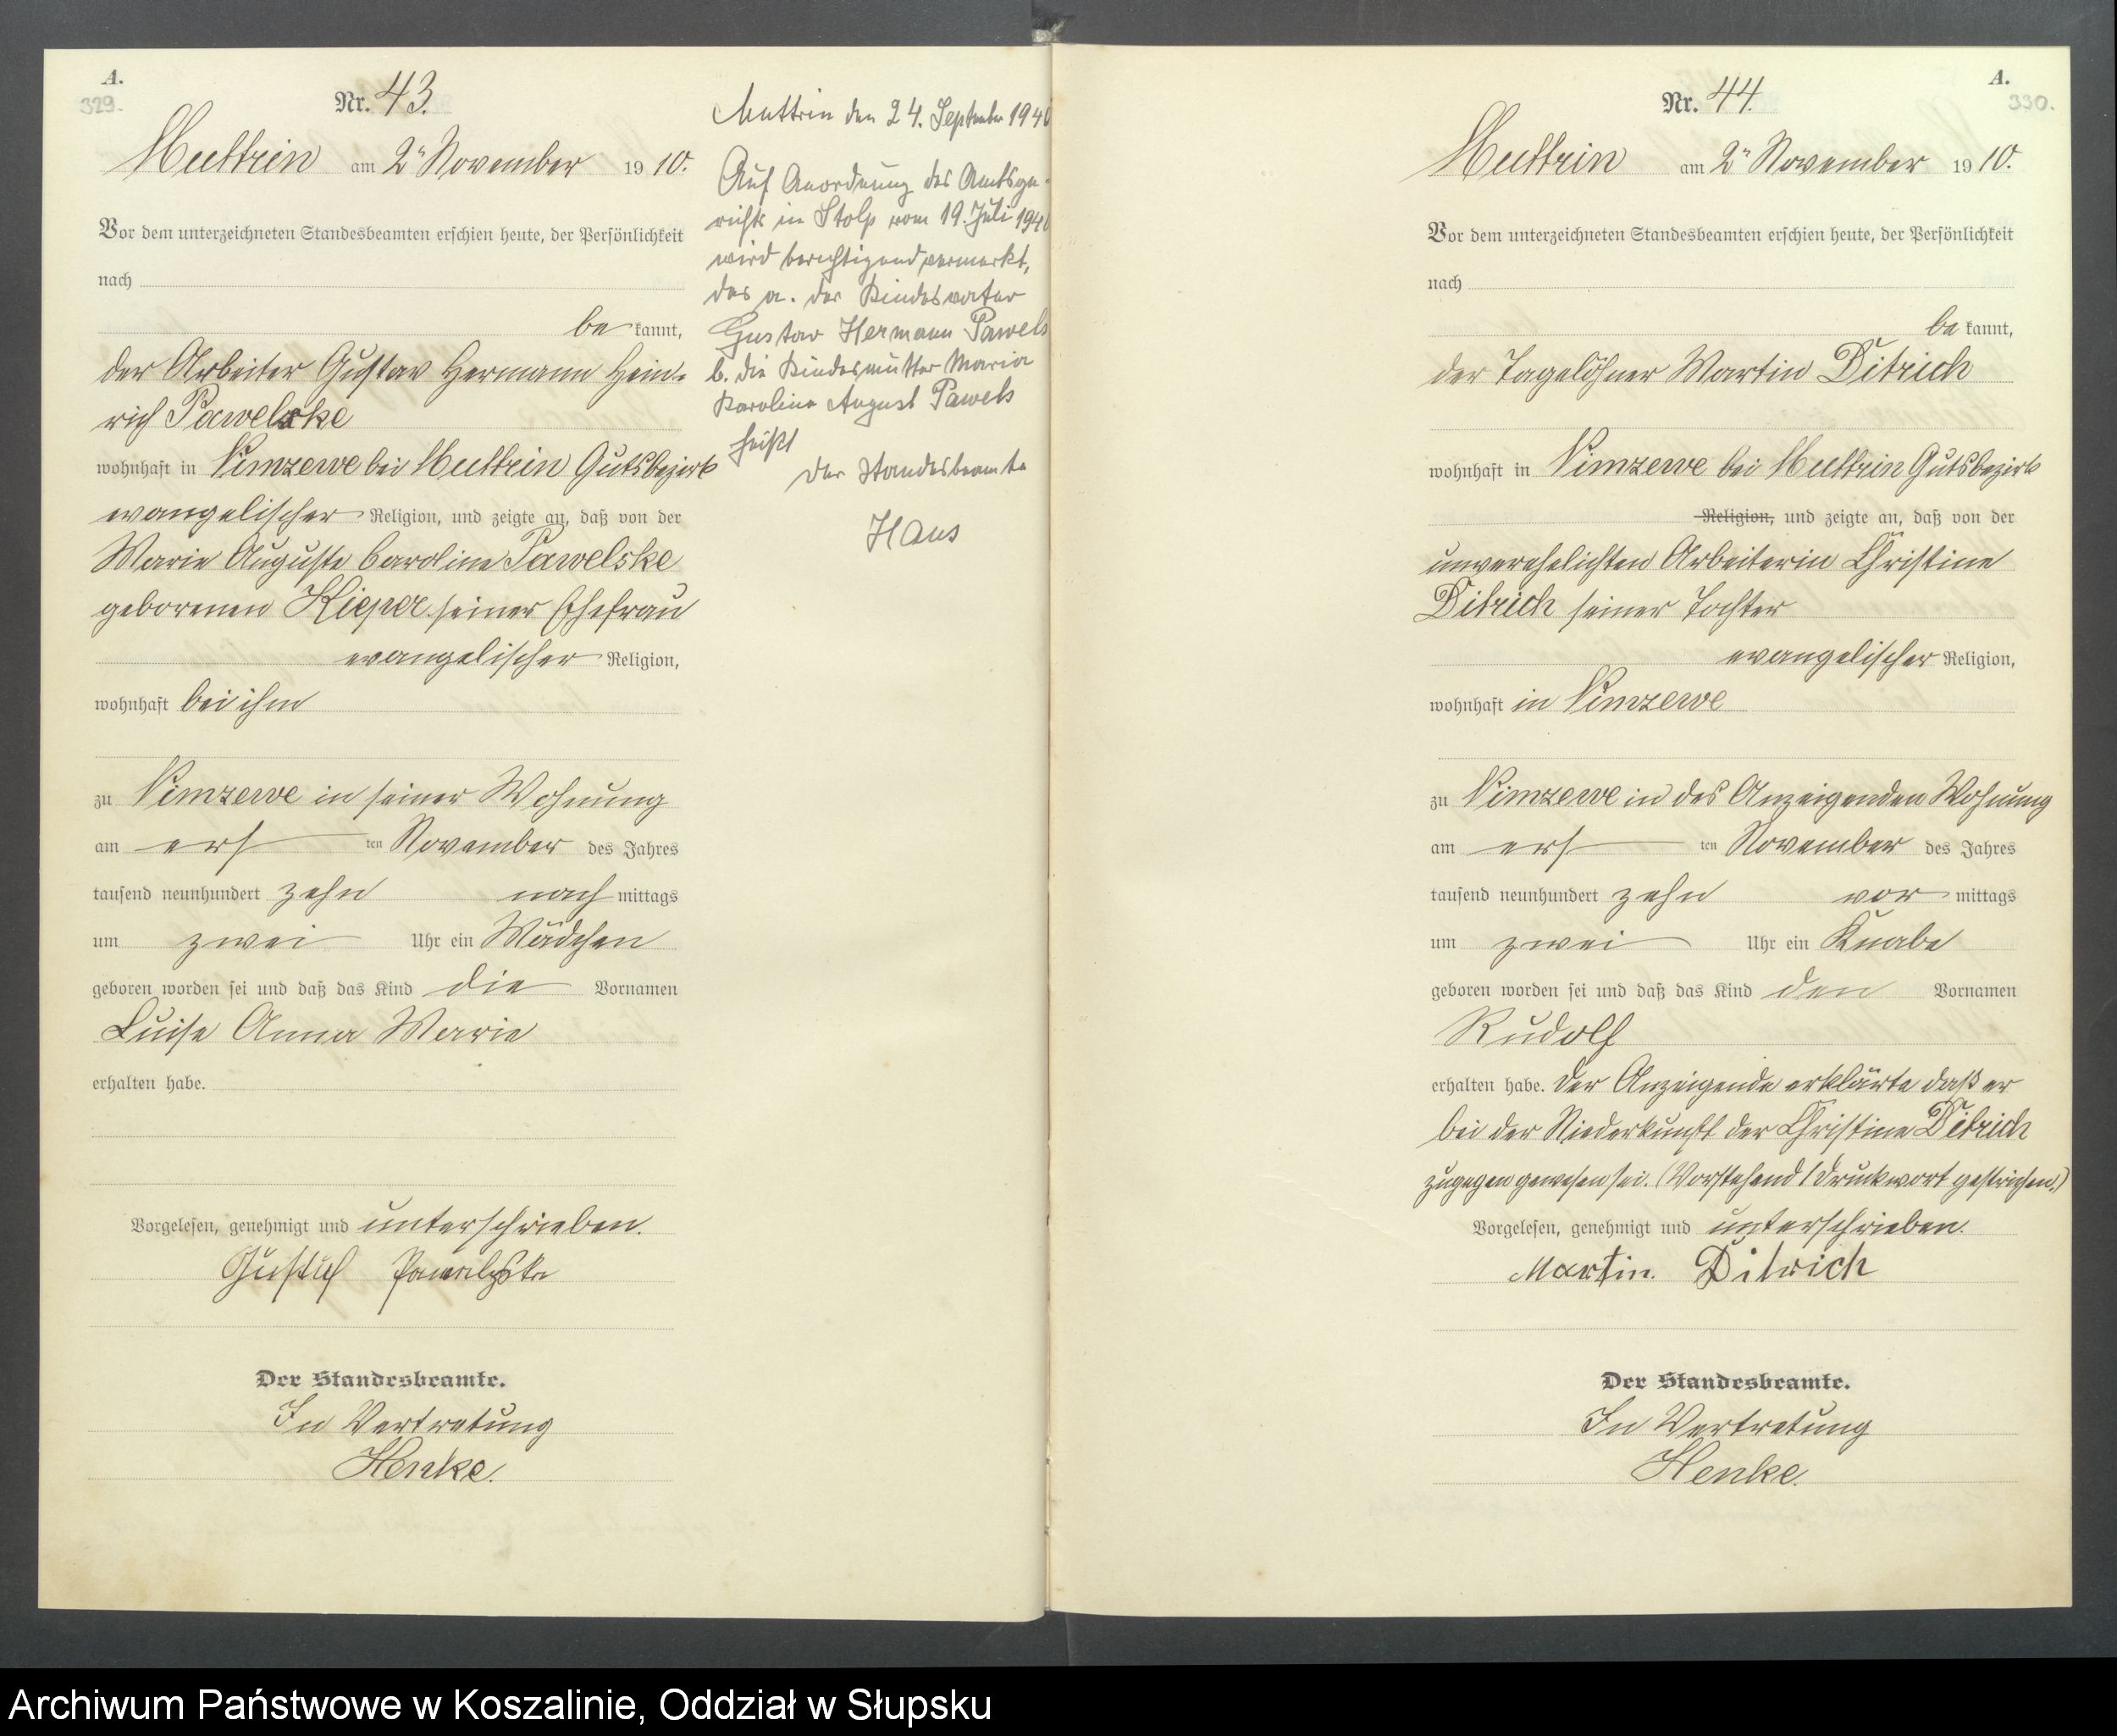 A.
329.
Nr. 43.
Muttrin am 2ⁿ November 19 10.
Vor dem unterzeichneten Standesbeamten erschien heute, der Persönlichkeit
nach
be kannt,
der Arbeiter Gustav Hermann Hein-
rich Pawelske
wohnhaft in Nimzewe bei Muttrin Gutsbezirk
evangelischer Religion, und zeigte an, daß von der
Marie Auguste Caroline Pawelske
geborenen Kieper seiner Ehefrau
evangelischer Religion,
wohnhaft bei ihm
zu Nimzewe in seiner Wohnung
am erst ten November des Jahres
tausend neunhundert zehn nach mittags
um zwei Uhr ein Mädchen
geboren worden sei und daß das Kind die Vornamen
Luise Anna Marie
erhalten habe.
Vorgelesen, genehmigt und unterschrieben.
Gustav Pawelske
Der Standesbeamte.
In Vertretung
Henke.
Muttrin den 24. September 1940
Auf Anordnung des Amtsge-
richts in Stolp vom 19. Juli 1940
wird berichtigend vermerkt,
das a. der Kindesvater
Gustav Hermann Pawels
b. die Kindesmutter Maria
Karoline August Pawels
heißt
Der Standesbeamte
Haus
A.
330.
Nr. 44.
Muttrin am 2ⁿ November 19 10.
Vor dem unterzeichneten Standesbeamten erschien heute, der Persönlichkeit
nach
be kannt,
der Tagelöhner Martin Ditrich
wohnhaft in Nimzewe bei Muttrin Gutsbezirk
Religion, und zeigte an, daß von der
unverehelichten Arbeiterin Christine
Ditrich seiner Tochter
evangelischer Religion,
wohnhaft in Nimzewe
zu Nimzewe in des Anzeigenden Wohnung
am erst ten November des Jahres
tausend neunhundert zehn vor mittags
um zwei Uhr ein Knabe
geboren worden sei und daß das Kind den Vornamen
Rudolf
erhalten habe. Der Anzeigende erklärte daß er
bei der Niederkunft der Christine Ditrich
zugegen gewesen sei. (Vorstehend 1 Druckwort gestrichen.)
Vorgelesen, genehmigt und unterschrieben.
Martin. Ditrich
Der Standesbeamte.
In Vertretung
Henke.
Archiwum Państwowe w Koszalinie, Oddział w Słupsku